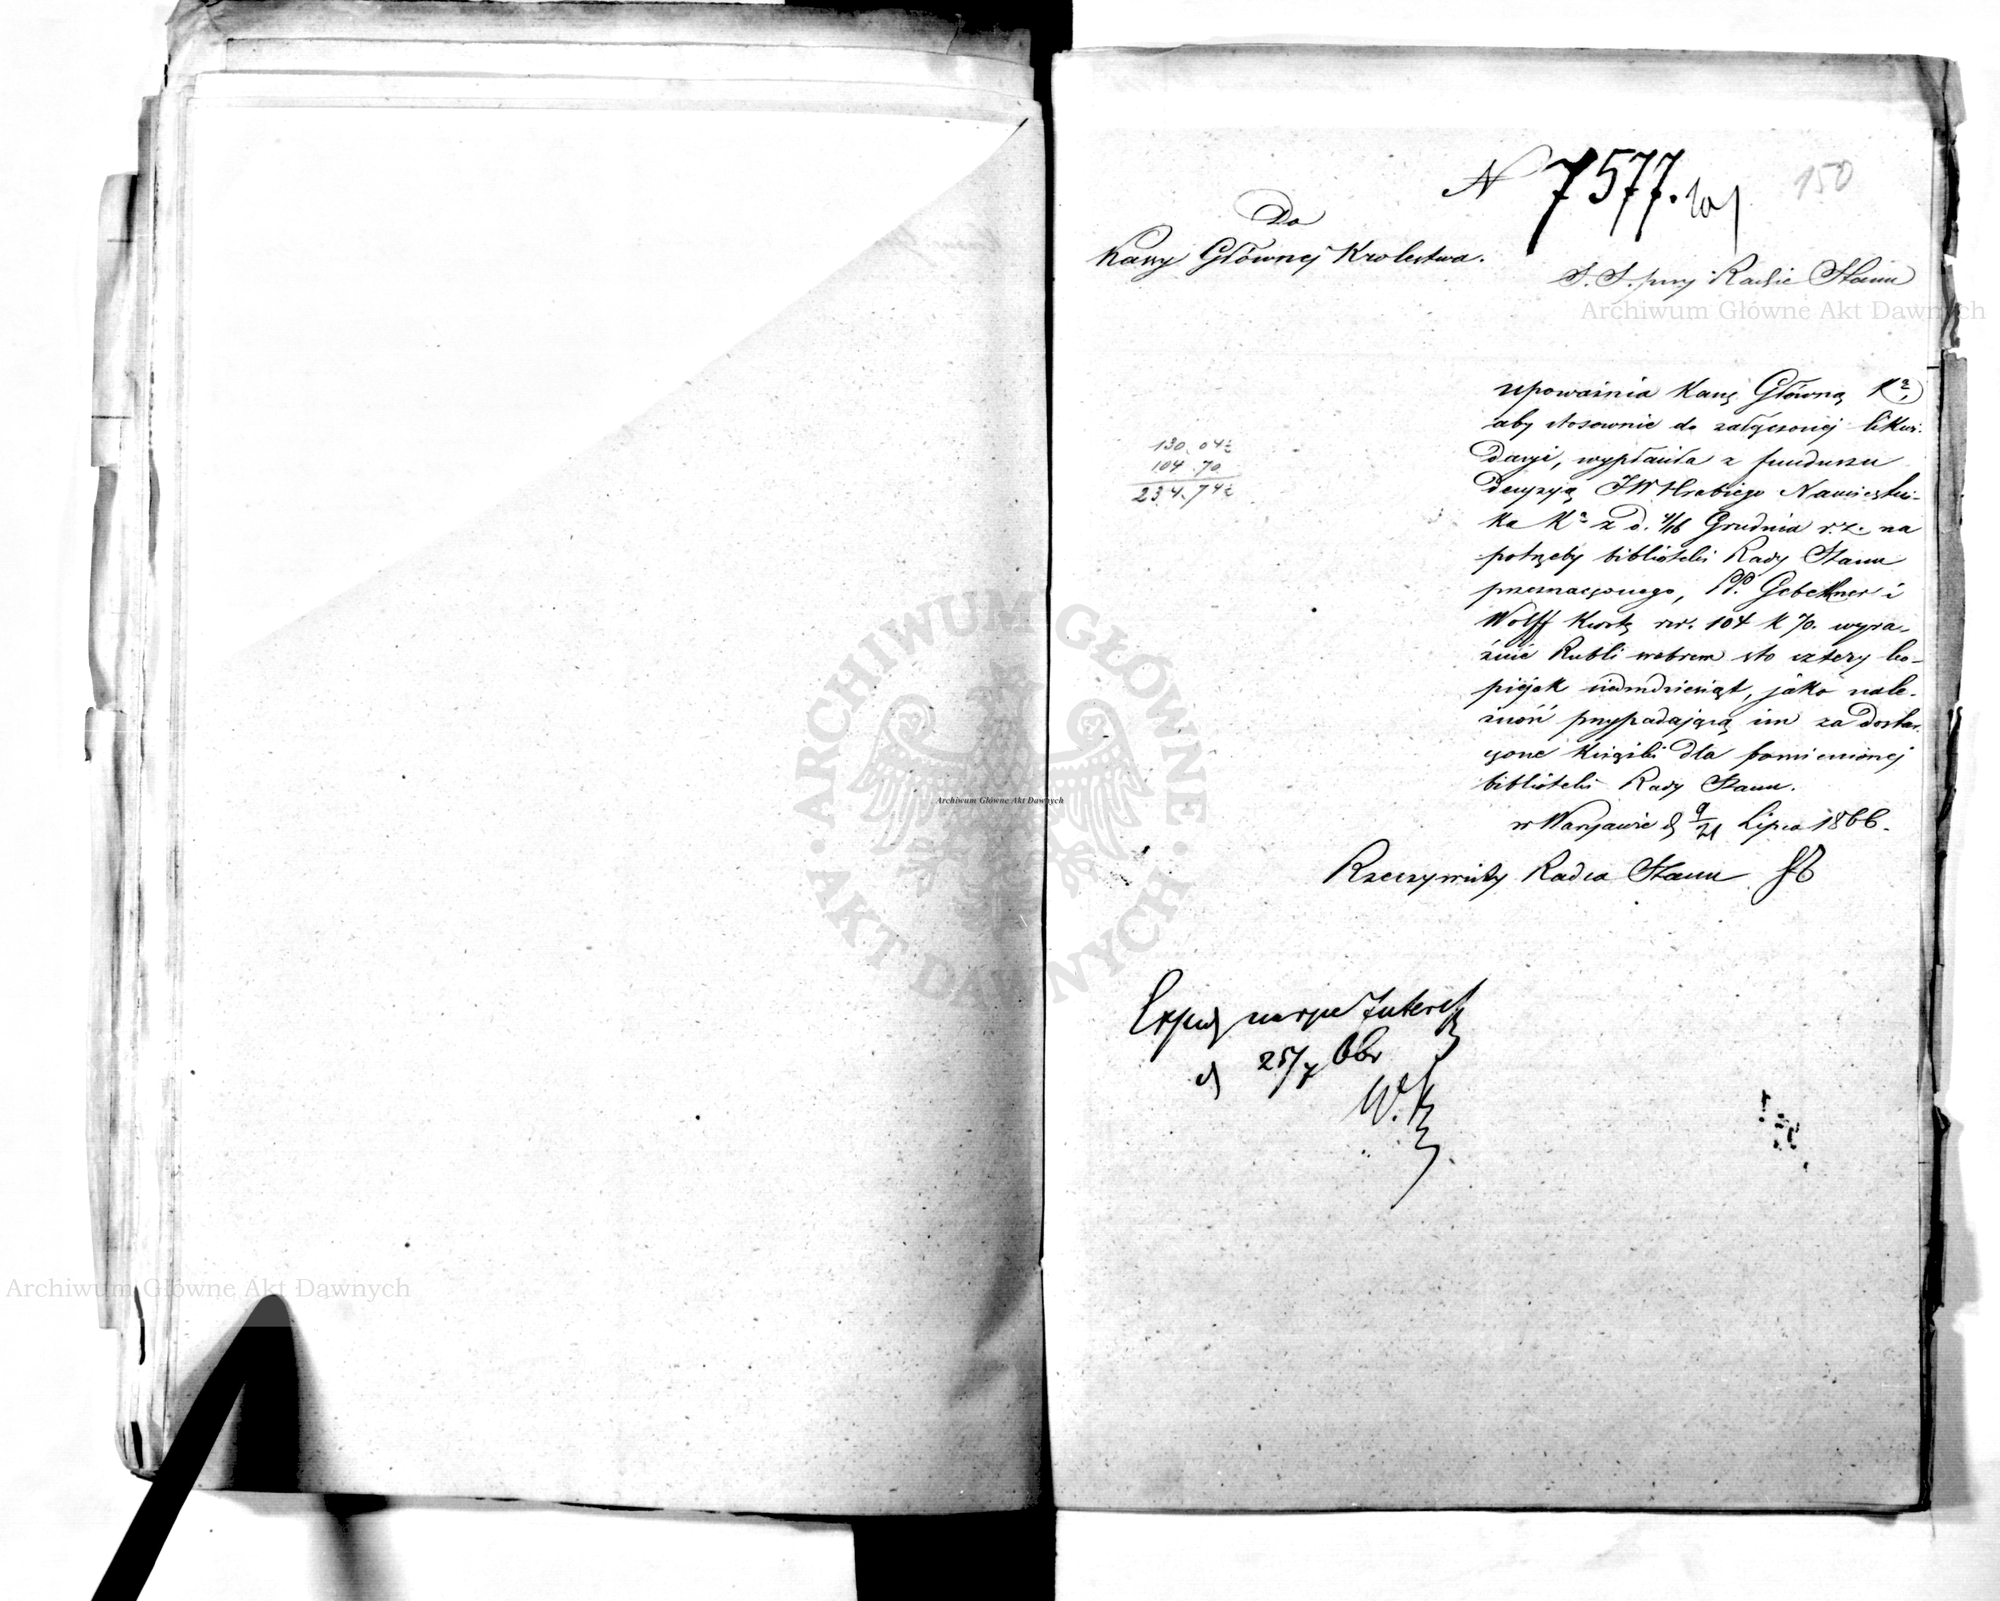 N 7577.
150
Do
Kassy Głównej Krolestwa.
S. S. przy Radzie Stanu
Archiwum Główne Akt Dawnych
upoważnia Kassę Główną Kª,
aby stosownie do załączonej likwi-
dacyi, wypłaciła z funduszu
decyzyą JW Hrabiego Namiestni-
ka Kª z d. 4/16 Grudnia r. z. na
potrzeby biblioteki Rady Stanu
przeznaczonego, PP. Gebethner i
Wolff kwotę rsr. 104 k 70. wyra-
źnie Rubli srebrem sto cztery ko-
piejek siedmdziesiąt, jako nale-
żność przypadającą im za dostar-
czone książki dla pomienionej
biblioteki Rady Stanu.
w Warszawie d 9/21 Lipca 1866.
130. 04½
104. 70
234. 74½
Rzeczywisty Radca Stanu
25/7
W. K
ARCHIWUM GŁÓWNE
AKT DAWNYCH
Archiwum Główne Akt Dawnych
Archiwum Główne Akt Dawnych